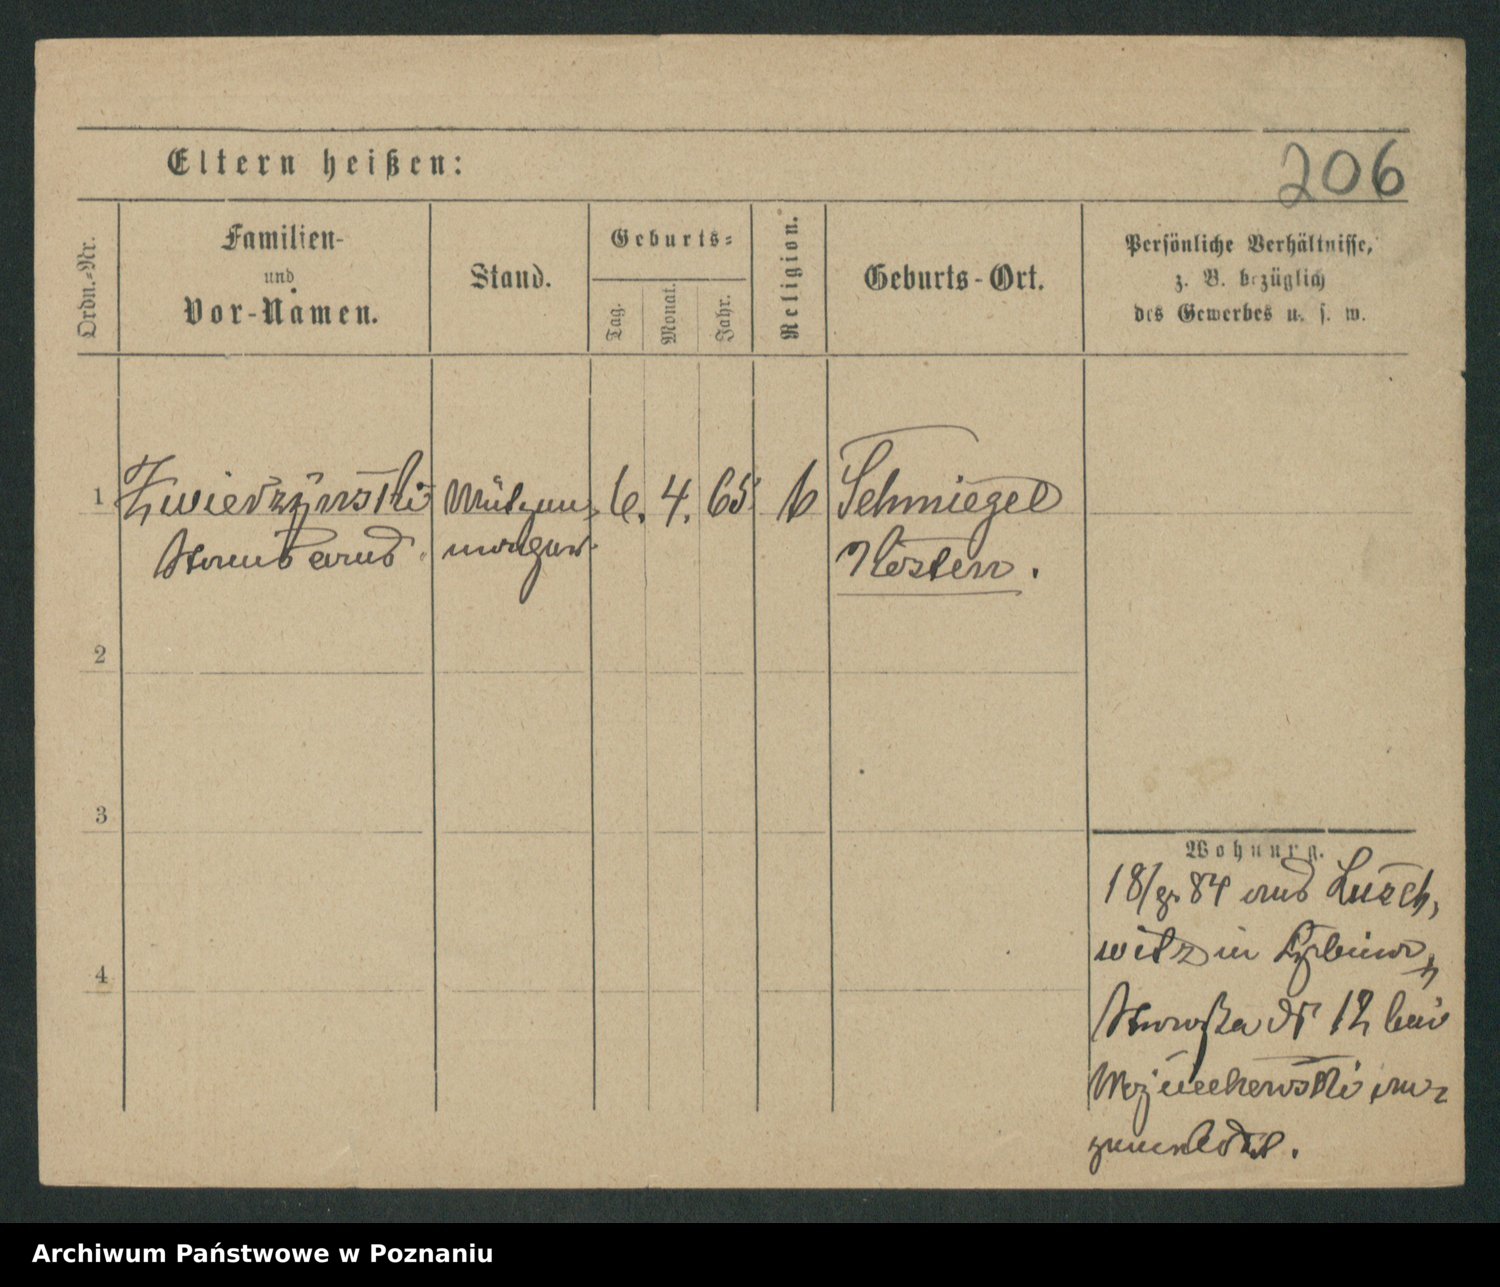 Eltern heißen:
206
Ordn.-Nr.
Familien-
und
Vor-Namen.
Stand.
Geburts-
Tag.
Monat.
Jahr.
Religion.
Geburts-Ort.
Persönliche Verhältnisse,
z. B. bezüglich
des Gewerbes u. s. w.
1
Zwierzynski
Mützen-
macher
6. 4. 65
k
Schmiegel
Kosten.
2
3
4
Wohnung.
18/9 84 aus Lusch-
witz in
No 12 bei
Wojciechowski an-
gemeldet.
Archiwum Państwowe w Poznaniu